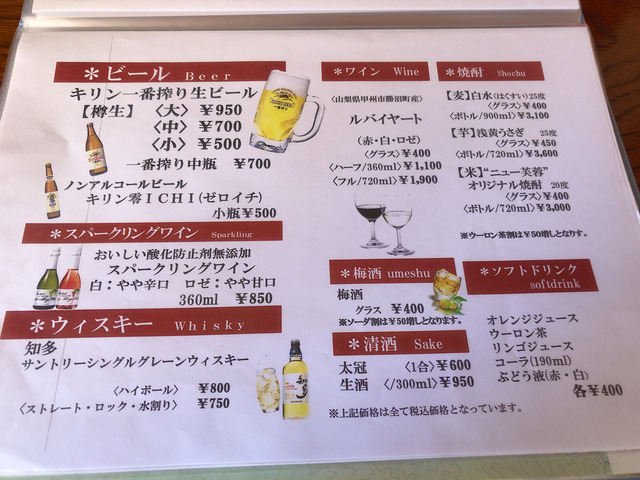 ＊ビール Beer
キリン一番搾り生ビール
【樽生】〈大〉￥950
〈中〉￥700
〈小〉￥500
一番搾り中瓶 ￥700
ノンアルコールビール
キリン零ＩＣＨＩ(ゼロイチ)
小瓶￥500
＊スパークリングワイン Sparkling
おいしい酸化防止剤無添加
スパークリングワイン
白：やや辛口 ロゼ：やや甘口
360ml ￥850
＊ウィスキー Whisky
知多
サントリーシングルグレーンウィスキー
〈ハイボール〉 ￥800
〈ストレート・ロック・水割り〉 ￥750
＊ワイン Wine
〈山梨県甲州市勝沼町産〉
ルバイヤート
(赤・白・ロゼ)
〈グラス〉￥400
〈ハーフ/360ml〉￥1,100
〈フル/720ml〉￥1,900
＊梅酒 umeshu
梅酒
グラス ￥400
※ソーダ割は￥50増しとなります。
＊清酒 Sake
太冠 〈1合〉￥600
生酒 〈/300ml〉￥950
※上記価格は全て税込価格となっています。
＊焼酎 Shochu
【麦】白水(はくすい)25度
〈グラス〉￥400
〈ボトル/900ml〉￥3,100
【芋】浅黄うさぎ 25度
〈グラス〉￥450
〈ボトル/720ml〉￥3,600
【米】“ニュー芙蓉”
オリジナル焼酎 20度
〈グラス〉￥400
〈ボトル/720ml〉￥3,000
※ウーロン茶割は￥50増しとなります。
＊ソフトドリンク
softdrink
オレンジジュース
ウーロン茶
リンゴジュース
コーラ(190ml)
ぶどう液(赤・白)
各￥400